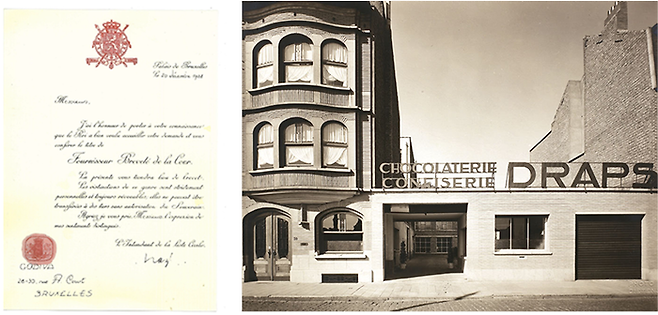 Palais de Bruxelles
Messieurs,
J'ai l'honneur de porter à votre connaissance
que le Roi a bien voulu accueillir votre demande et vous
conférer le titre de
Fournisseur Breveté de la Cour.
La présente vous tiendra lieu de brevet.
personnelles et toujours révocables, elles ne peuvent être
transférées à des tiers sans autorisation du Souverain.
Agréez, je vous prie, Messieurs, l'expression de
mes sentiments distingués.
L'Intendant de la Liste Civile,
GODIVA
BRUXELLES
CHOCOLATERIE
CONFISERIE
DRAPS